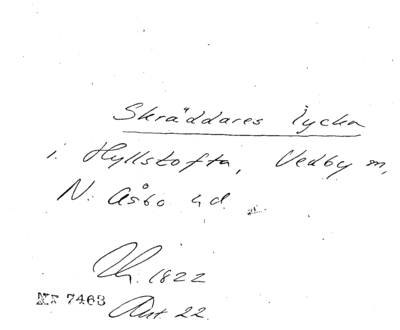 Skräddares lycka
i. Hyllstofta, Vedby m,
N. Åsbo hd
Th. 1822
Nr 7463
Ant. 22.